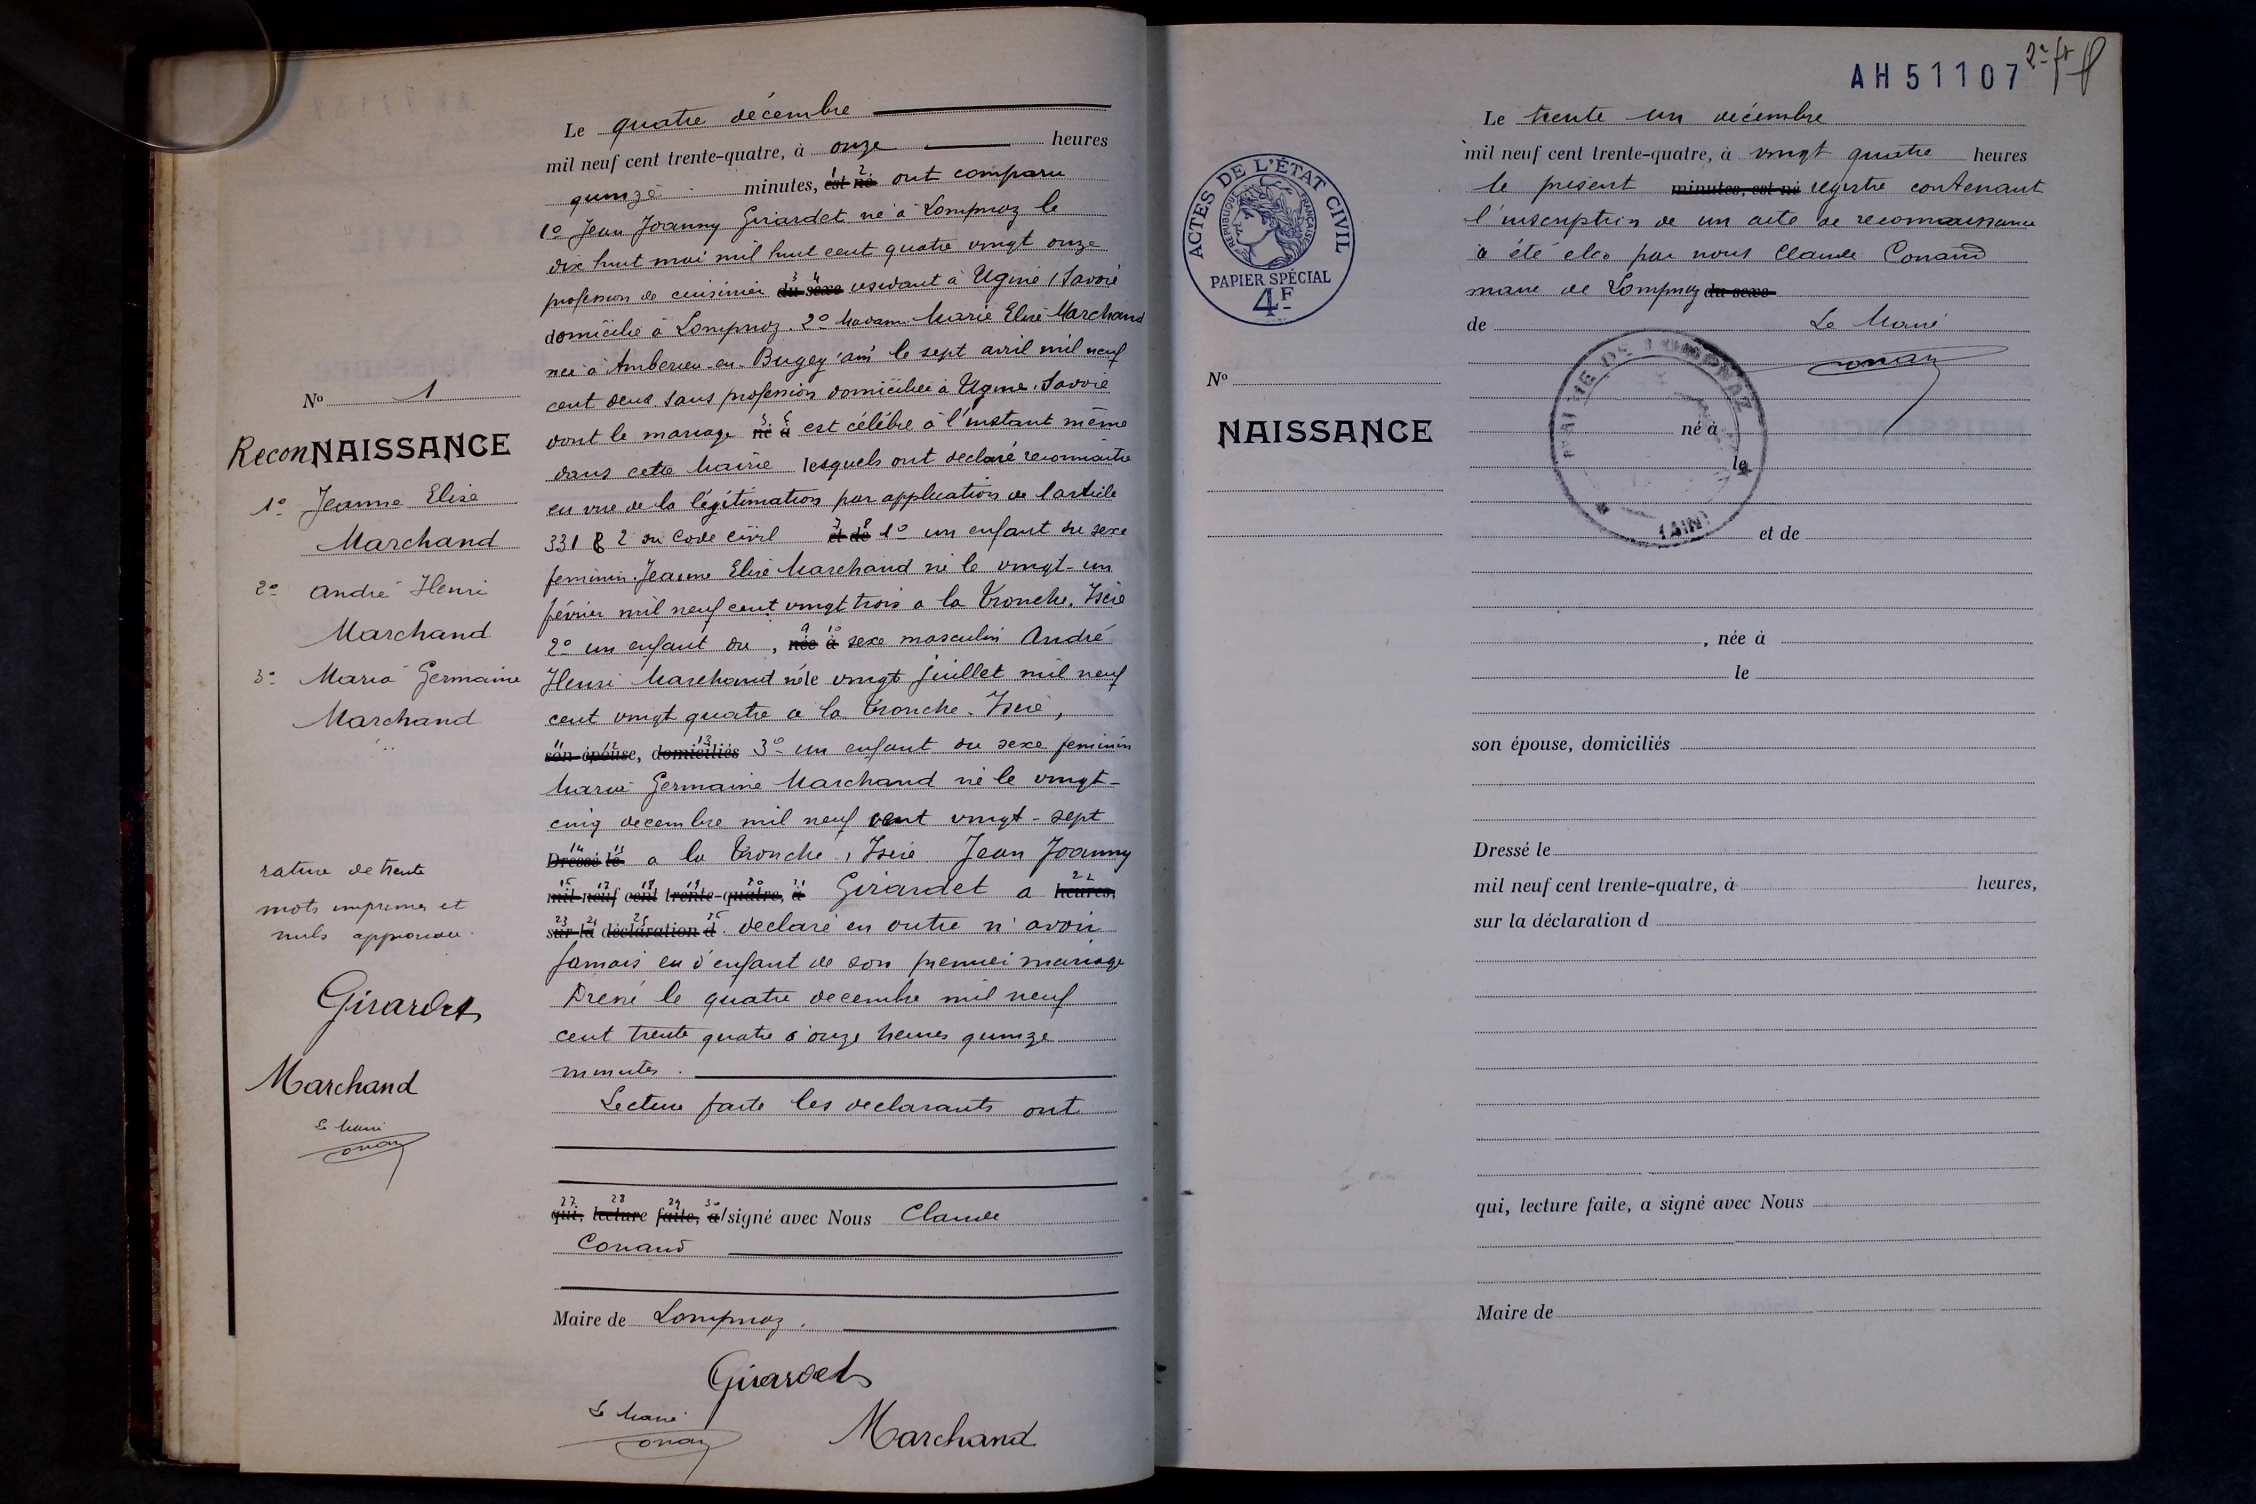 Le quatre décembre
mil neuf cent trente-quatre, à onze heures
quinze minutes, est né ont comparu
1º Jean Joanny Girardet né à Lompnaz le
dix huit mai mil huit cent quatre vingt onze
profession de cuisinier du sexe résidant à Ugine (Savoie
domicilié à Lompnaz. 2º Madame Marie Elise Marchand
née à Ambérieu-en-Bugey Ain le sept avril mil neuf
cent deux sans profession domiciliée à Ugine, Savoie
dont le mariage né à est célébré à l'instant même
dans cette Mairie lesquels ont déclaré reconnaitre
en vue de la légitimation par application de l'article
331 § 2 du Code Civil et de 1º un enfant du sexe
feminin Jeanne Elise Marchand né le vingt-un
février mil neuf cent vingt trois a la Tronche, Isère
2º un enfant du , née à sexe masculin André
Henri Marchand né le vingt juillet mil neuf
cent vingt quatre a la Tronche. Isère,
son épouse, domiciliés 3º un enfant du sexe feminin
Marie Germaine Marchand né le vingt-
cinq decembre mil neuf cent vingt-sept
Dressé le a la Tronche, Isère Jean Joanny
mil neuf cent trente-quatre, à Girardet a heures,
sur la déclaration d declaré en outre n'avoir
jamais eu d'enfant de son premier mariage
Dressé le quatre decembre mil neuf
cent trente quatre à onze heures quinze
minutes.
Lecture faite les declarants ont
qui, lecture faite, a signé avec Nous Claude
Conand
Maire de Lompnaz.
Girardet
Le Maire
Conand
Marchand
Nº 1
ReconNAISSANCE
1º Jeanne Elise
Marchand
2º André Henri
Marchand
3º Marie Germaine
Marchand
rature de trente
mots imprimés et
nuls approuvée.
Girardet
Marchand
Le Maire
Conand
AH51107
ACTES DE L'ÉTAT CIVIL
RÉPUBLIQUE FRANÇAISE
PAPIER SPÉCIAL
4F
Nº
NAISSANCE
Le trente un décembre
mil neuf cent trente-quatre, à vingt quatre heures
le présent minutes, est né registre contenant
l'inscription de un acte de reconnaissance
a été clos par nous Claude Conand
maire de Lompnaz du sexe
de Le Maire
Conand
MAIRIE DE LOMPNAZ
(AIN)
né à
le
et de
, née à
le
son épouse, domiciliés
Dressé le
mil neuf cent trente-quatre, à heures,
sur la déclaration d
qui, lecture faite, a signé avec Nous
Maire de